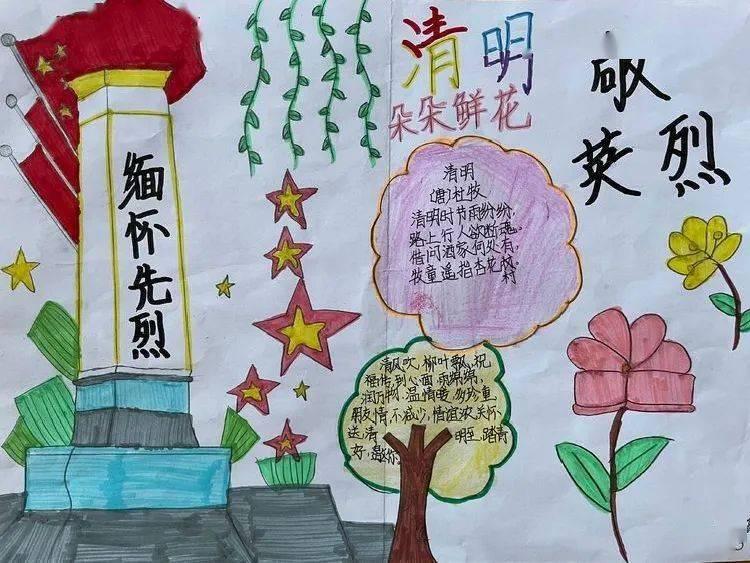 缅怀先烈
清明
朵朵鲜花
敬
英烈
清明
(唐)杜牧
清明时节雨纷纷,
路上行人欲断魂。
借问酒家何处有,
牧童遥指杏花
村
清风吹,柳叶飘,祝
福传到心面,雨绵绵,
润万物,温情暖,多珍重
朋友情,不减少,情谊浓,关怀
送,清 明至,踏青
好,邀你。